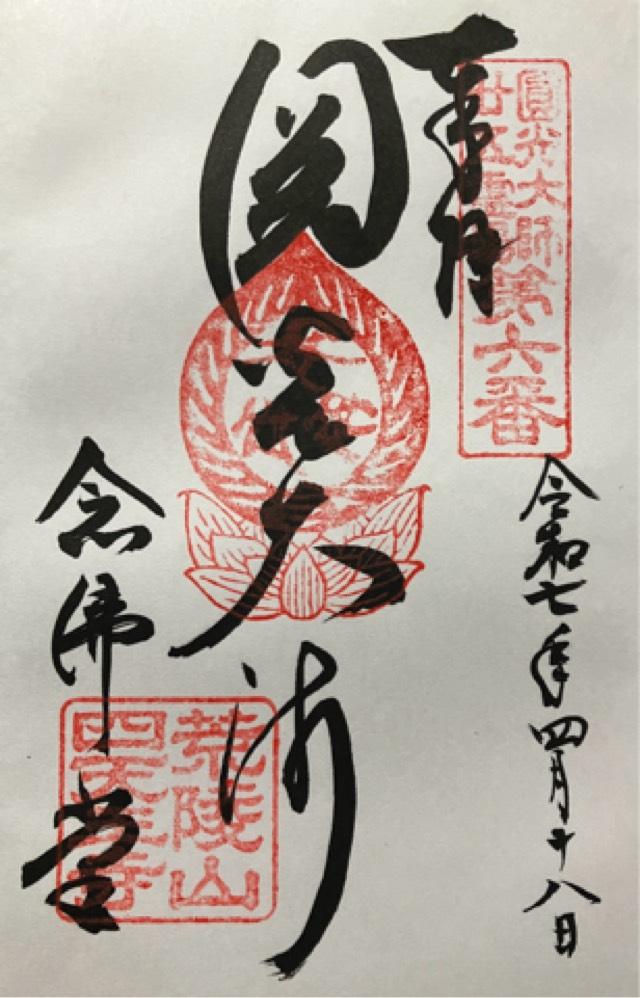 奉拝
圓光大師
廿五霊場
第六番
令和七年四月十八日
圓光大師
念佛堂
荒陵山
四天王寺